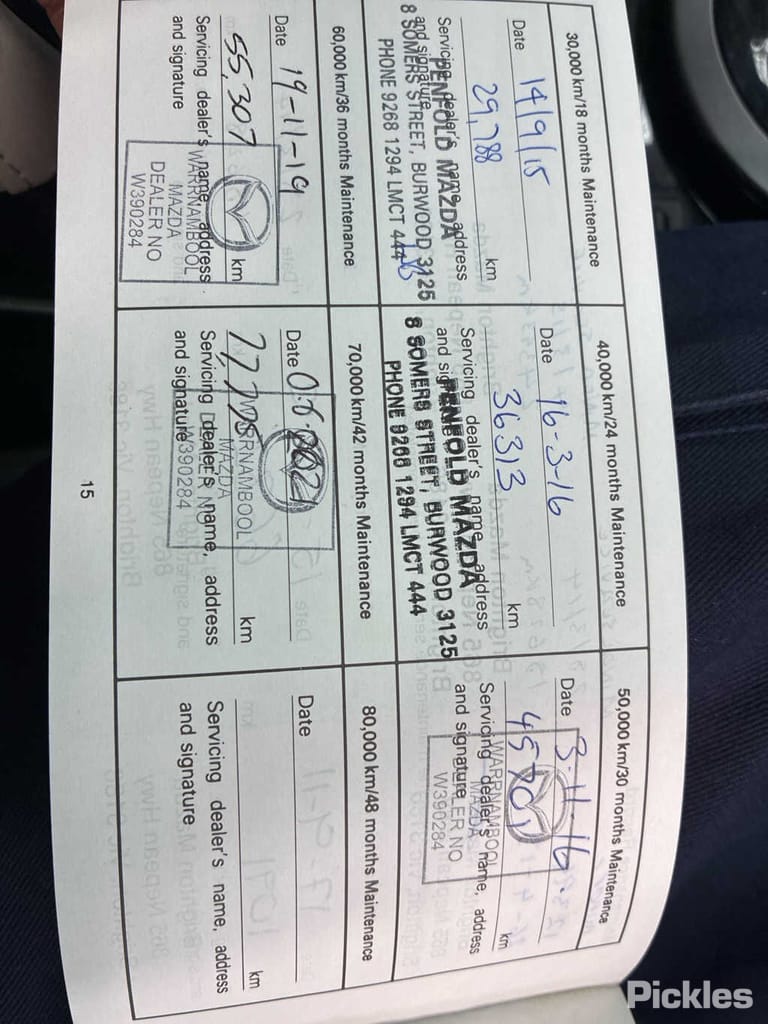 30,000 km/18 months Maintenance
Date 14/9/15
29,788 km
Servicing dealer's name, address
and signature
PENFOLD MAZDA
8 SOMERS STREET, BURWOOD 3125
PHONE 9268 1294 LMCT 444
40,000 km/24 months Maintenance
Date 16-3-16
36313 km
Servicing dealer's name, address
and signature
PENFOLD MAZDA
8 SOMERS STREET, BURWOOD 3125
PHONE 9268 1294 LMCT 444
50,000 km/30 months Maintenance
Date 3-11-16
45701 km
Servicing dealer's name, address
and signature
WARRNAMBOOL
MAZDA
DEALER NO
W390284
60,000 km/36 months Maintenance
Date 19-11-19
55,307 km
Servicing dealer's name, address
and signature
WARRNAMBOOL
MAZDA
DEALER NO
W390284
70,000 km/42 months Maintenance
Date
km
Servicing dealer's name, address
and signature
WARRNAMBOOL
MAZDA
DEALER NO
W390284
80,000 km/48 months Maintenance
Date
km
Servicing dealer's name, address
and signature
15
Pickles